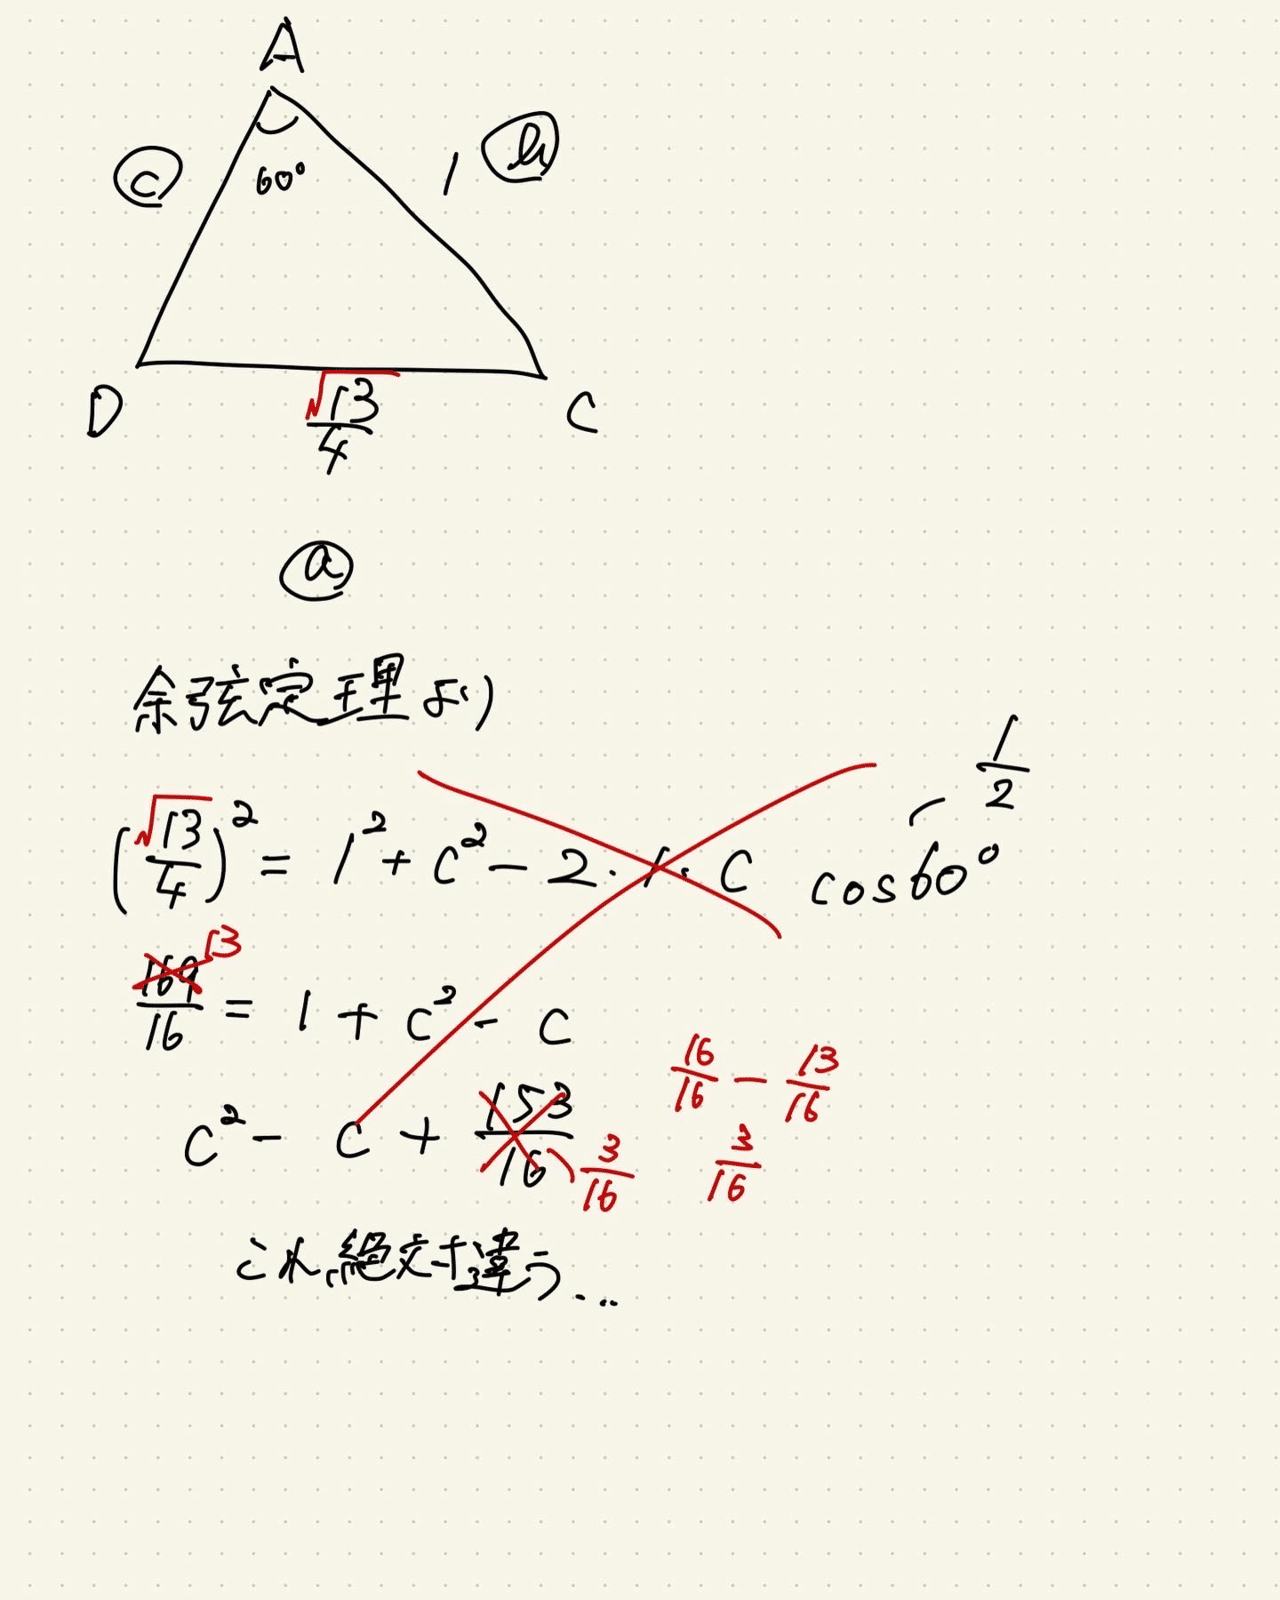 A
c 60° 1 b
D √13/4 C
a
余弦定理より
1/2
(√13/4)² = 1² + c² - 2・1・c cos60°
13
169/16 = 1 + c² - c
16/16 - 13/16
c² - c + 153/16 3/16 3/16
これ絶対違う...